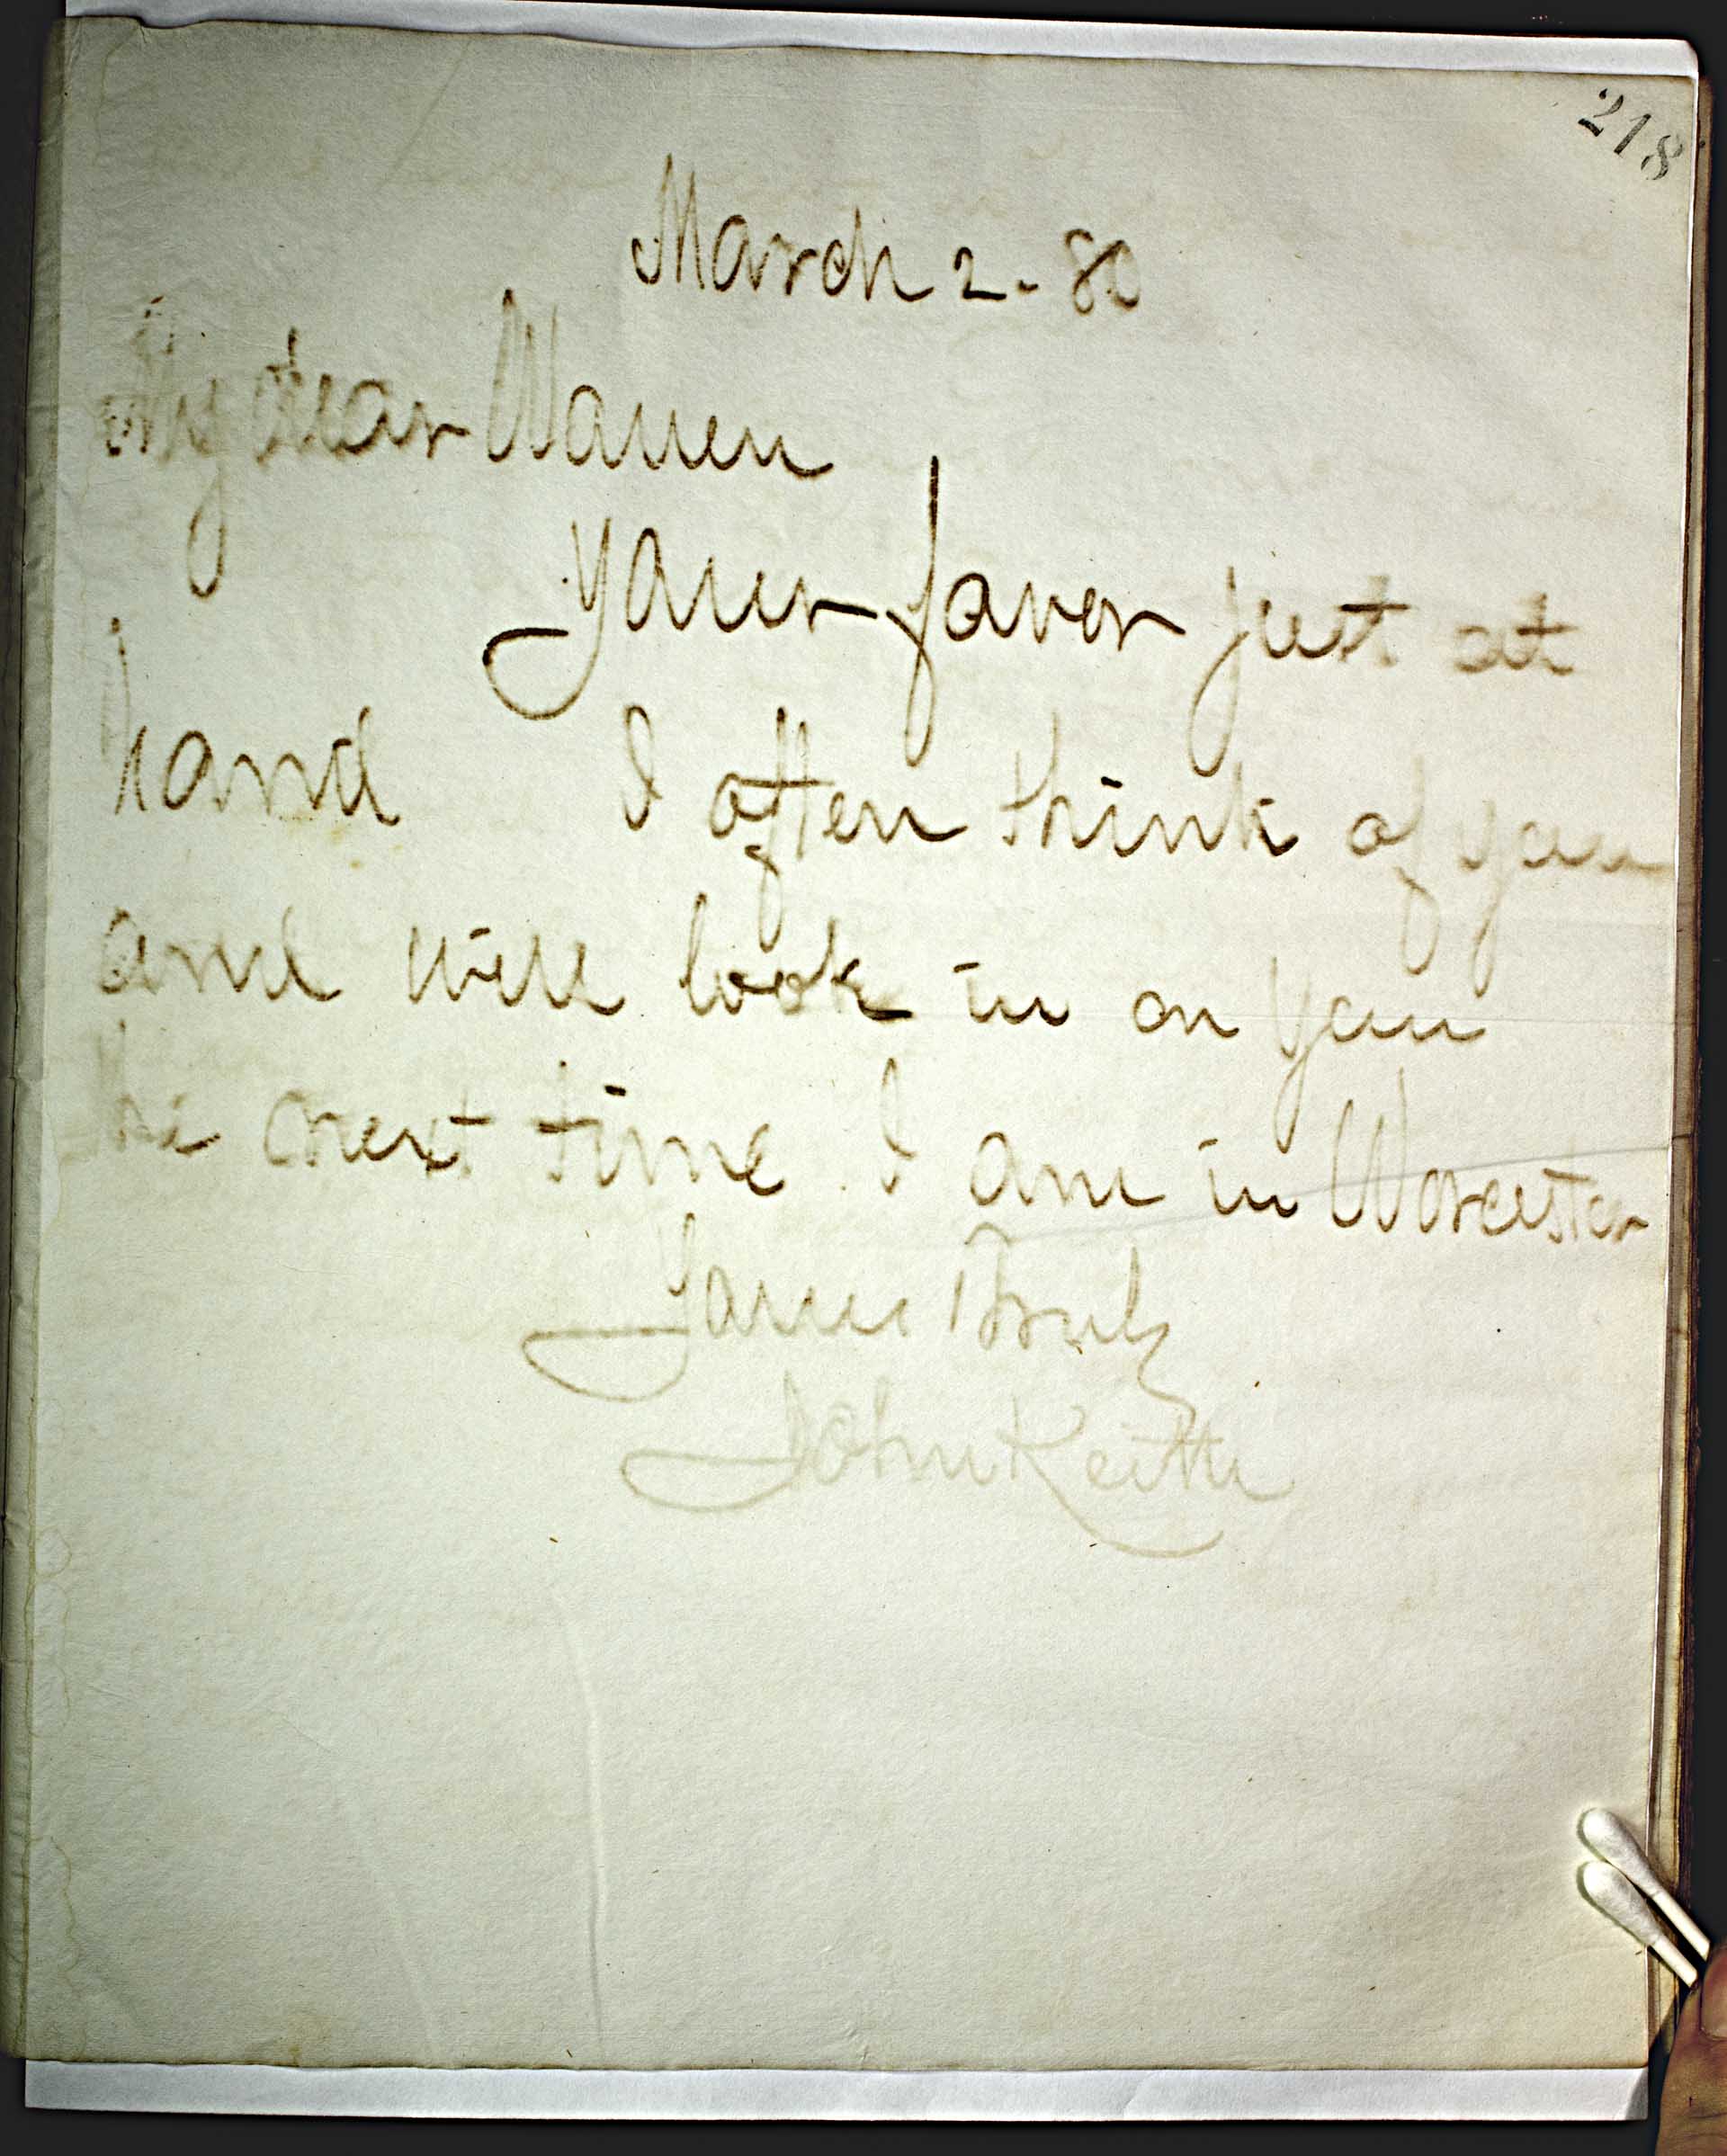 218
March 2 - 80
My dear Warren
Your favor just at
hand I often think of you
and will look in on you
the next time I am in Worcester
Yours Truly
John Keith